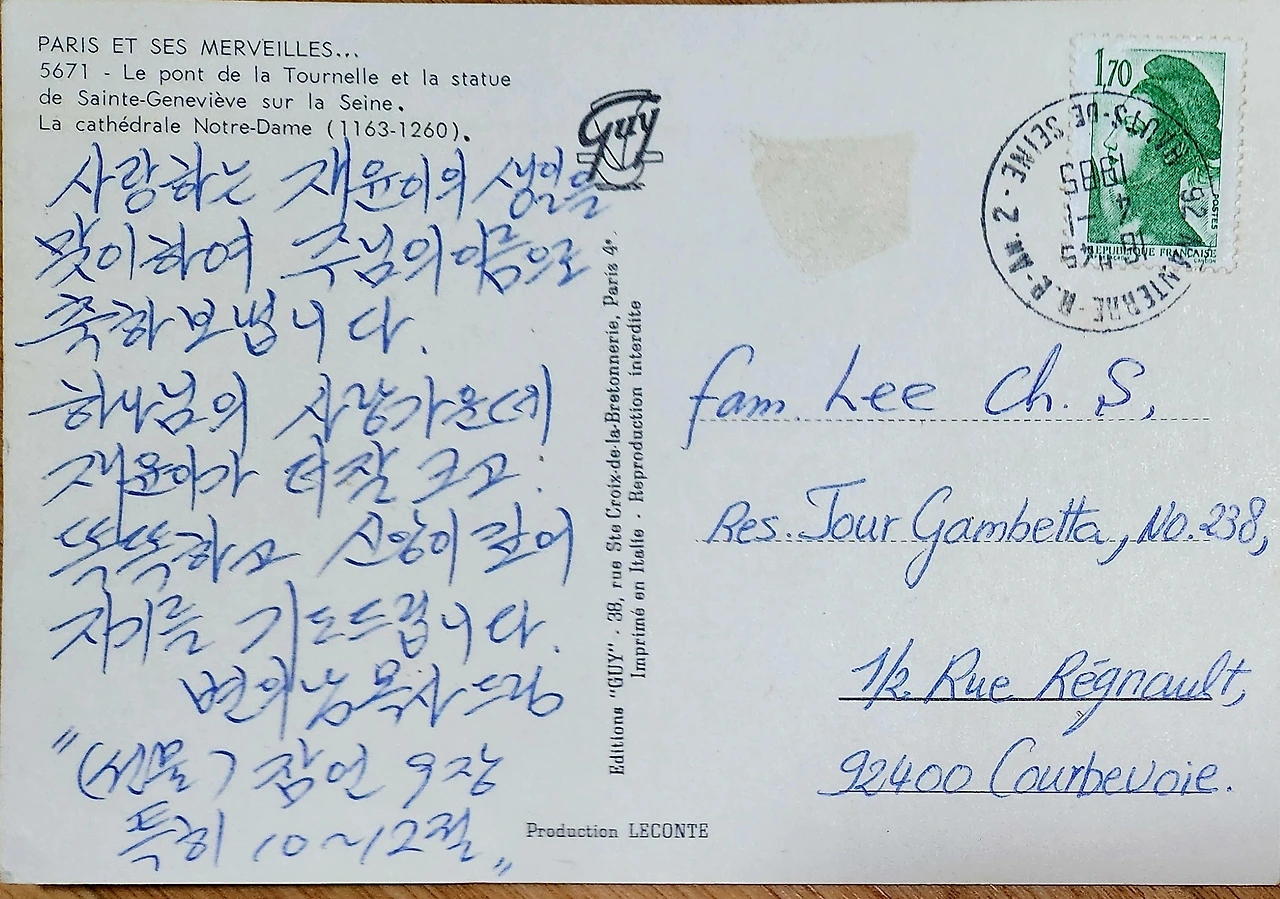 PARIS ET SES MERVEILLES...
5671 - Le pont de la Tournelle et la statue
de Sainte-Geneviève sur la Seine.
La cathédrale Notre-Dame (1163-1260).
Guy
사랑하는 재윤이의 생일을
맞이하여 주님의 이름으로
축하보냅니다.
하나님의 사랑가운데
재윤이가 더 잘 크고
똑똑하고 신앙이 깊어
지기를 기도드립니다.
변의남 목사 드림
"(선물) 잠언 9장
특히 10~12절"
Editions "GUY" - 38, rue Ste Croix-de-la-Bretonnerie, Paris 4e.
Imprimé en Italie - Reproduction interdite
Production LECONTE
1,70
POSTES
REPUBLIQUE FRANÇAISE
92 NANTERRE-R.P-AN.2.
HAUTS-DE-SEINE
4 - 1
1985
fam. Lee Ch. S,
Res. Tour Gambetta, No. 238,
1/2 Rue Régnault,
92400 Courbevoie.